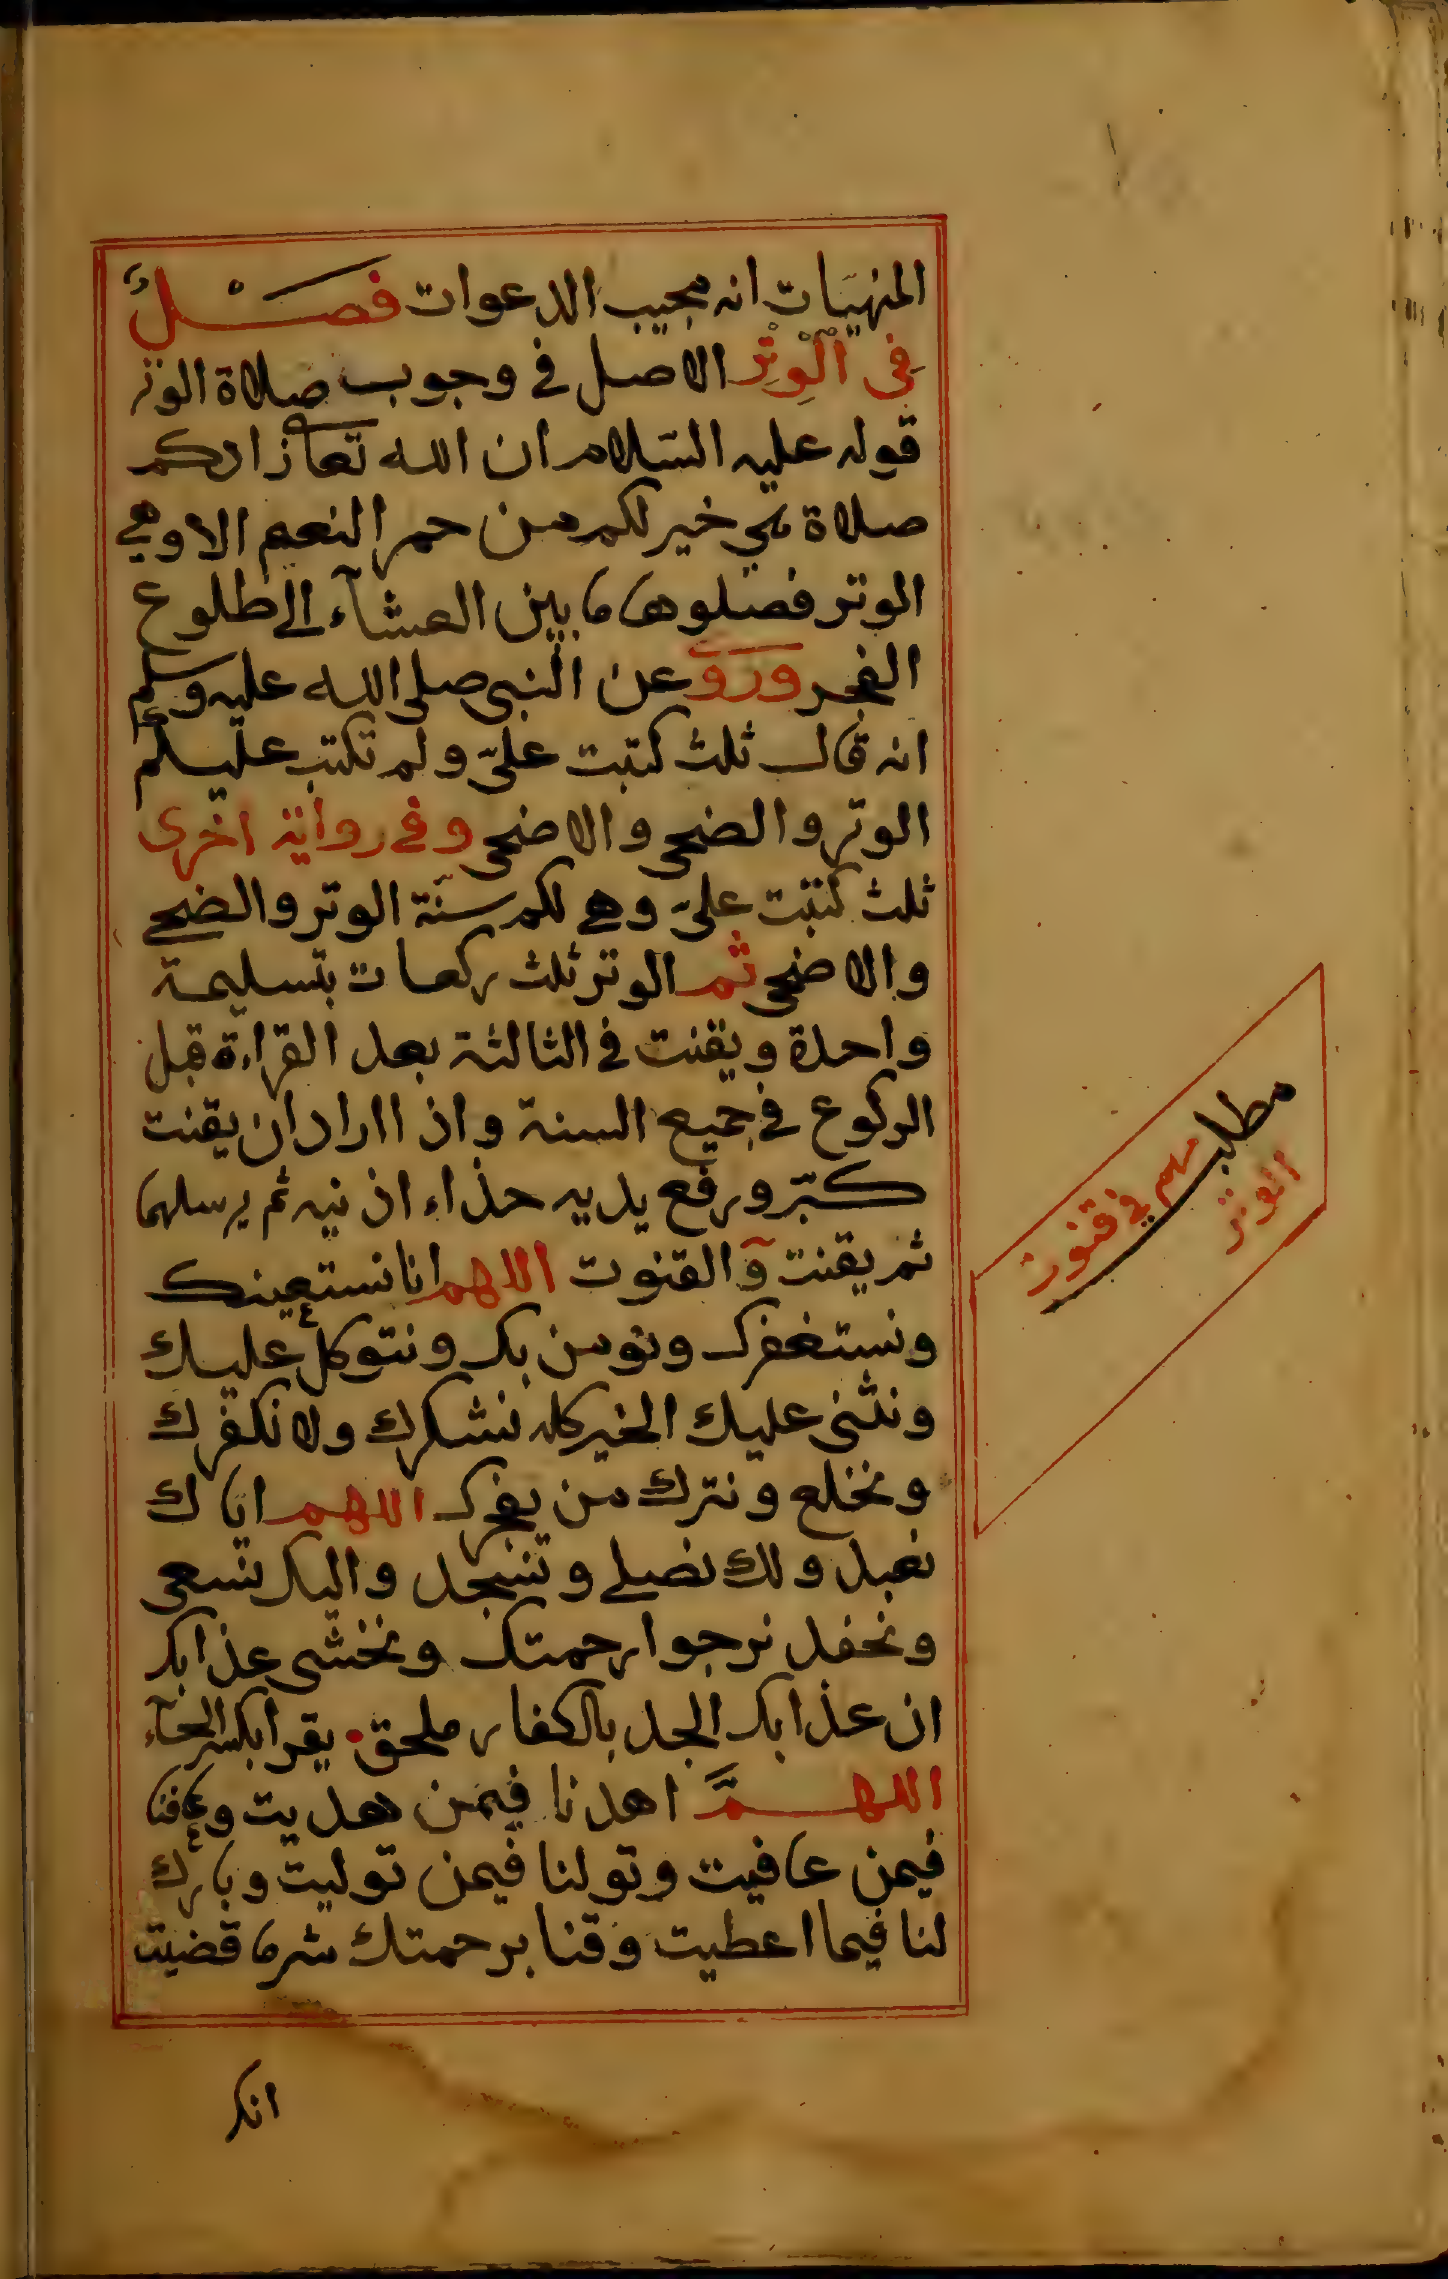 المنهيات انه مجيب الدعوات فَصْلٌ
فِي الْوِتْرِ الاصل في وجوب صلاة الوتر
قوله عليه السّلام ان الله تعا زادكم
صلاة هي خير لكم من حمر النعم الا وهي
الوتر فصلوها ما بين العشآء الى طلوع
الفجر وَرَوَى عن النبي صلى الله عليه وسلم
انه قال ثلث كتبت عليّ ولم تكتب عليكم
الوتر والضحى والاضحى وفي رواية اخرى
ثلث كتبت عليّ وهي لكم سنّة الوتر والضحى
والاضحى ثم الوتر ثلث ركعات بتسليمة
واحدة ويقنت في الثالثة بعد القراءة قبل
الركوع في جميع السنة واذا اراد ان يقنت
كبّر ورفع يديه حذاء اذنيه ثم يرسلهما
ثم يقنت وَالقنوت اللهم انا نستعينك
ونستغفرك ونومن بك ونتوكل عليك
ونثني عليك الخير كله نشكرك ولا نكفرك
ونخلع ونترك من يفجرك اللهم اياك
نعبد ولك نصلي ونسجد واليك نسعى
ونحفد نرجوا رحمتك ونخشى عذابك
ان عذابك الجد بالكفار ملحق يقرا بكسر الحآء
اللهمَّ اهدنا فيمن هديت وعافنا
فيمن عافيت وتولنا فيمن توليت وبارك
لنا فيما اعطيت وقنا برحمتك شر ما قضيت
انك
مطلب
مهم في قنوت
الوتر